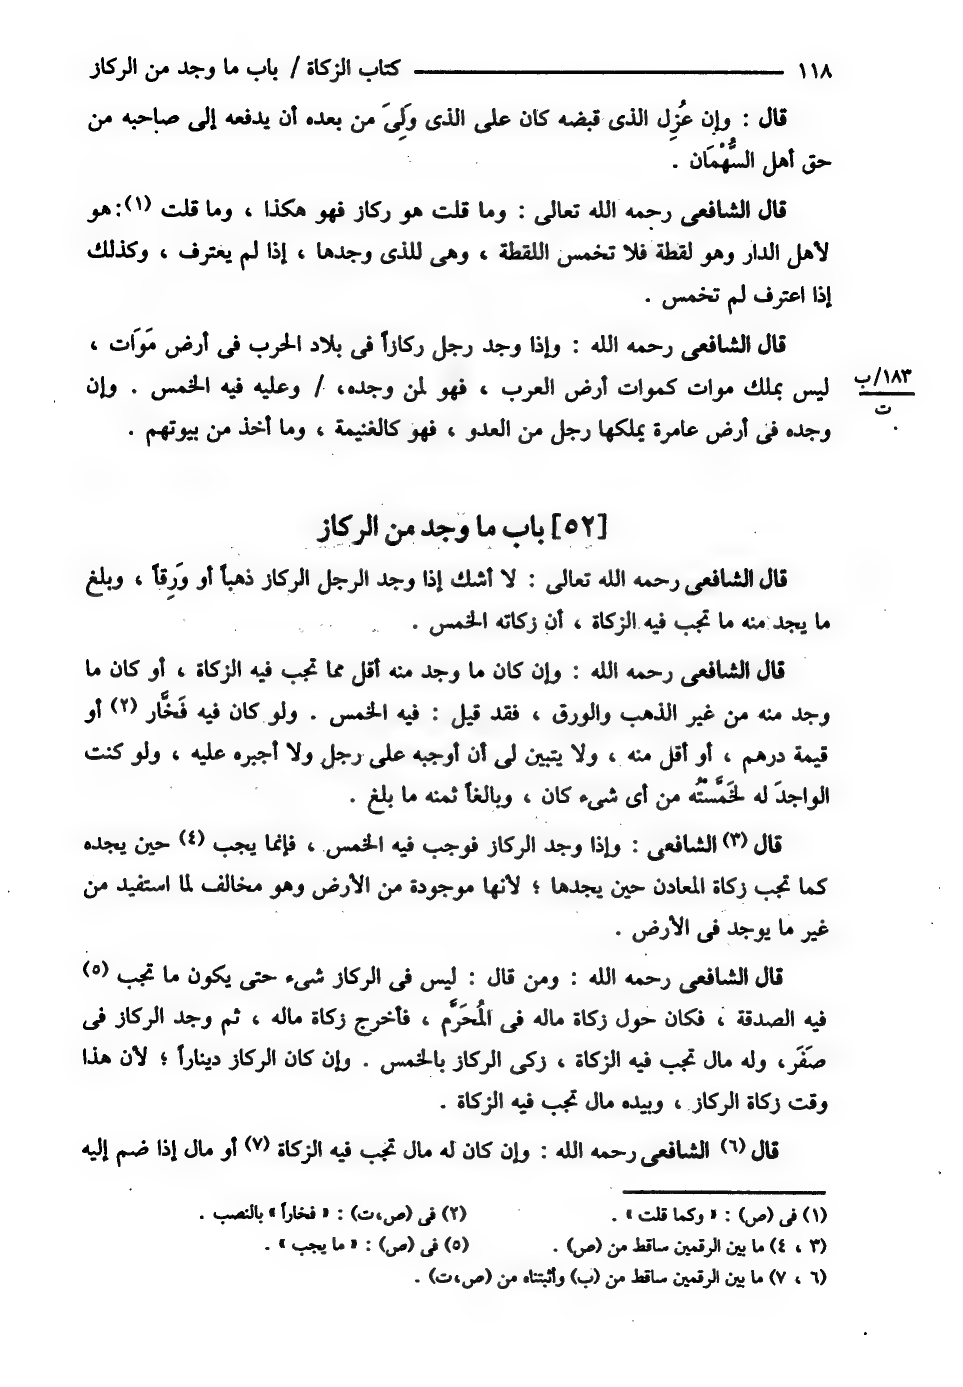 ١١٨ كتاب الزكاة / باب ما وجد من الركاز
قال : وإن عُزِل الذى قبضه كان على الذى وَلِىَ من بعده أن يدفعه إلى صاحبه من
حق أهل السُّهْمَان .
قال الشافعى رحمه الله تعالى : وما قلت هو ركاز فهو هكذا ، وما قلت (١) : هو
لأهل الدار وهو لقطة فلا تخمس اللقطة ، وهى للذى وجدها ، إذا لم يعترف ، وكذلك
إذا اعترف لم تخمس .
قال الشافعى رحمه الله : وإذا وجد رجل ركازاً فى بلاد الحرب فى أرض مَوَات ،
ليس بملك موات كموات أرض العرب ، فهو لمن وجده، / وعليه فيه الخمس . وإن
١٨٣/ب
ت
وجده فى أرض عامرة يملكها رجل من العدو ، فهو كالغنيمة ، وما أخذ من بيوتهم .
[٥٢] باب ما وجد من الركاز
قال الشافعى رحمه الله تعالى : لا أشك إذا وجد الرجل الركاز ذهباً أو وَرِقاً ، وبلغ
ما يجد منه ما تجب فيه الزكاة ، أن زكاته الخمس .
قال الشافعى رحمه الله : وإن كان ما وجد منه أقل مما تجب فيه الزكاة ، أو كان ما
وجد منه من غير الذهب والورق ، فقد قيل : فيه الخمس . ولو كان فيه فَخَّار (٢) أو
قيمة درهم ، أو أقل منه ، ولا يتبين لى أن أوجبه على رجل ولا أجبره عليه ، ولو كنت
الواجدَ له لخَمَّسْتُه من أى شىء كان ، وبالغاً ثمنه ما بلغ .
قال (٣) الشافعى : وإذا وجد الركاز فوجب فيه الخمس ، فإنما يجب (٤) حين يجده
كما تجب زكاة المعادن حين يجدها ؛ لأنها موجودة من الأرض وهو مخالف لما استفيد من
غير ما يوجد فى الأرض .
قال الشافعى رحمه الله : ومن قال : ليس فى الركاز شىء حتى يكون ما تجب (٥)
فيه الصدقة ، فكان حول زكاة ماله فى المُحَرَّم ، فأخرج زكاة ماله ، ثم وجد الركاز فى
صَفَر، وله مال تجب فيه الزكاة ، زكى الركاز بالخمس . وإن كان الركاز ديناراً ؛ لأن هذا
وقت زكاة الركاز ، وبيده مال تجب فيه الزكاة .
قال (٦) الشافعى رحمه الله : وإن كان له مال تجب فيه الزكاة (٧) أو مال إذا ضم إليه
(١) فى (ص) : « وكما قلت » . (٢) فى (ص،ت) : « فخاراً » بالنصب .
(٣ ، ٤) ما بين الرقمين ساقط من (ص) . (٥) فى (ص) : « ما يجب » .
(٦ ، ٧) ما بين الرقمين ساقط من (ب) وأثبتناه من (ص،ت) .